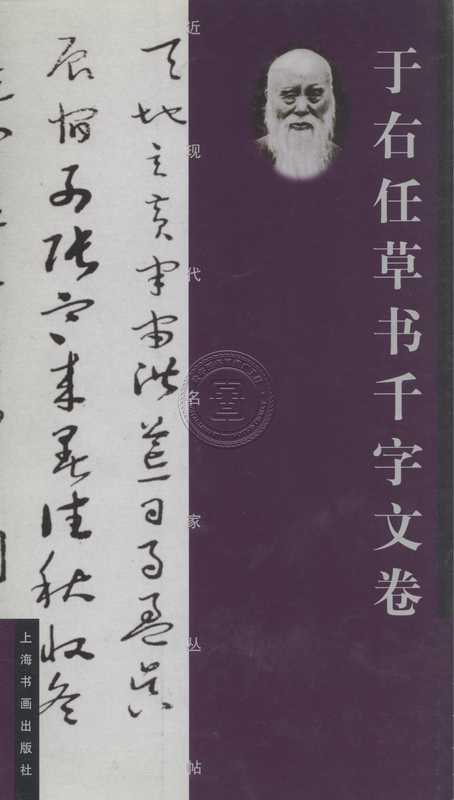 于右任草书千字文卷
近现代名家丛帖
天地玄黄宇宙洪荒日月盈昃
辰宿列張寒来暑往秋收冬
上海书画出版社